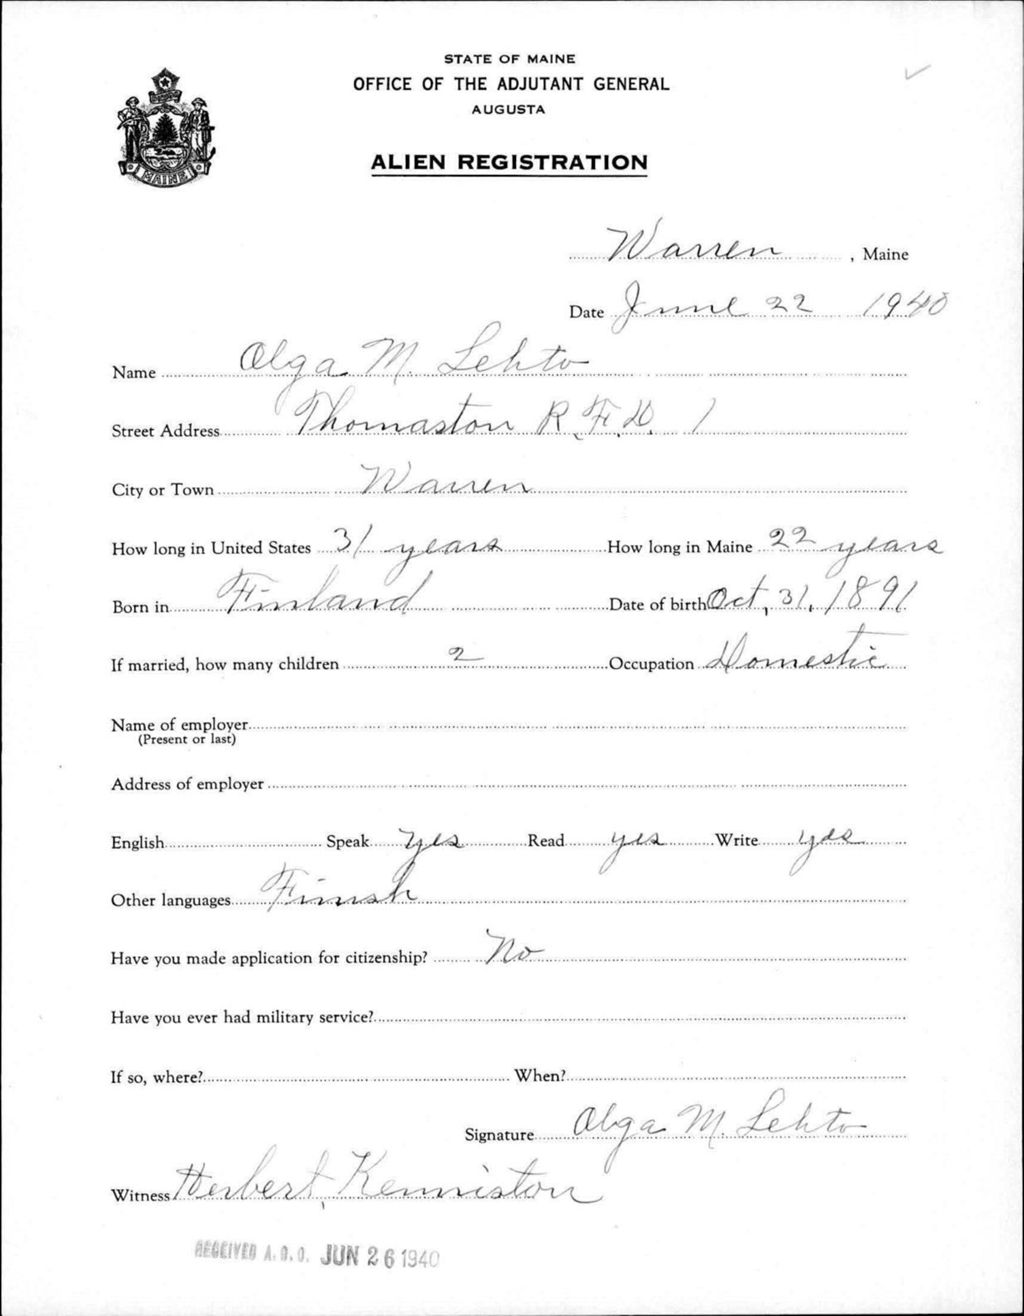 STATE OF MAINE
OFFICE OF THE ADJUTANT GENERAL
AUGUSTA
ALIEN REGISTRATION
MAINE
Warren, Maine
Date June 22 1940
Name Olga M. Lehto
Street Address Thomaston R.F.D. 1
City or Town Warren
How long in United States 31 years How long in Maine 22 years
Born in Finland Date of birth Oct, 31, 1891
If married, how many children 2 Occupation Domestic
Name of employer
(Present or last)
Address of employer
English Speak yes Read yes Write yes
Other languages Finish
Have you made application for citizenship? No
Have you ever had military service?
If so, where? When?
Signature Olga M. Lehto
Witness Herbert Kenniston
RECEIVED A.G.O. JUN 26 1940